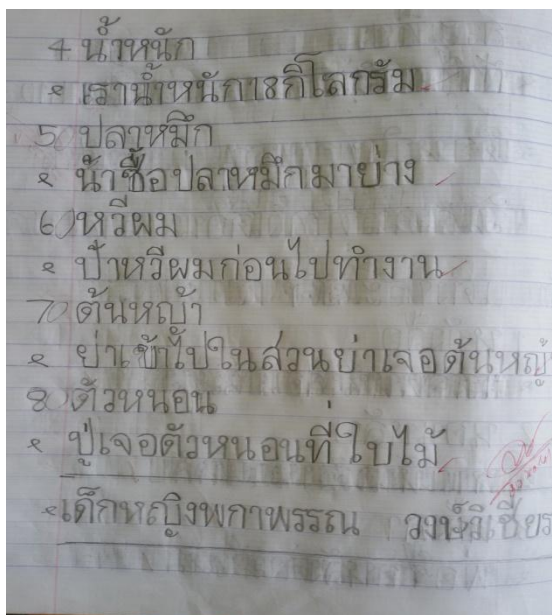 4 น้ำหนัก
เราน้ำหนัก18กิโลกรัม
5 ปลาหมึก
น้าซื้อปลาหมึกมาย่าง
6 หวีผม
ป้าหวีผมก่อนไปทำงาน
7 ต้นหญ้า
ย่าเข้าไปในสวนย่าเจอต้นหญ้
8 ตัวหนอน
ปู่เจอตัวหนอนที่ใบไม้
เด็กหญิงพกาพรรณ วงษ์วิเชียร